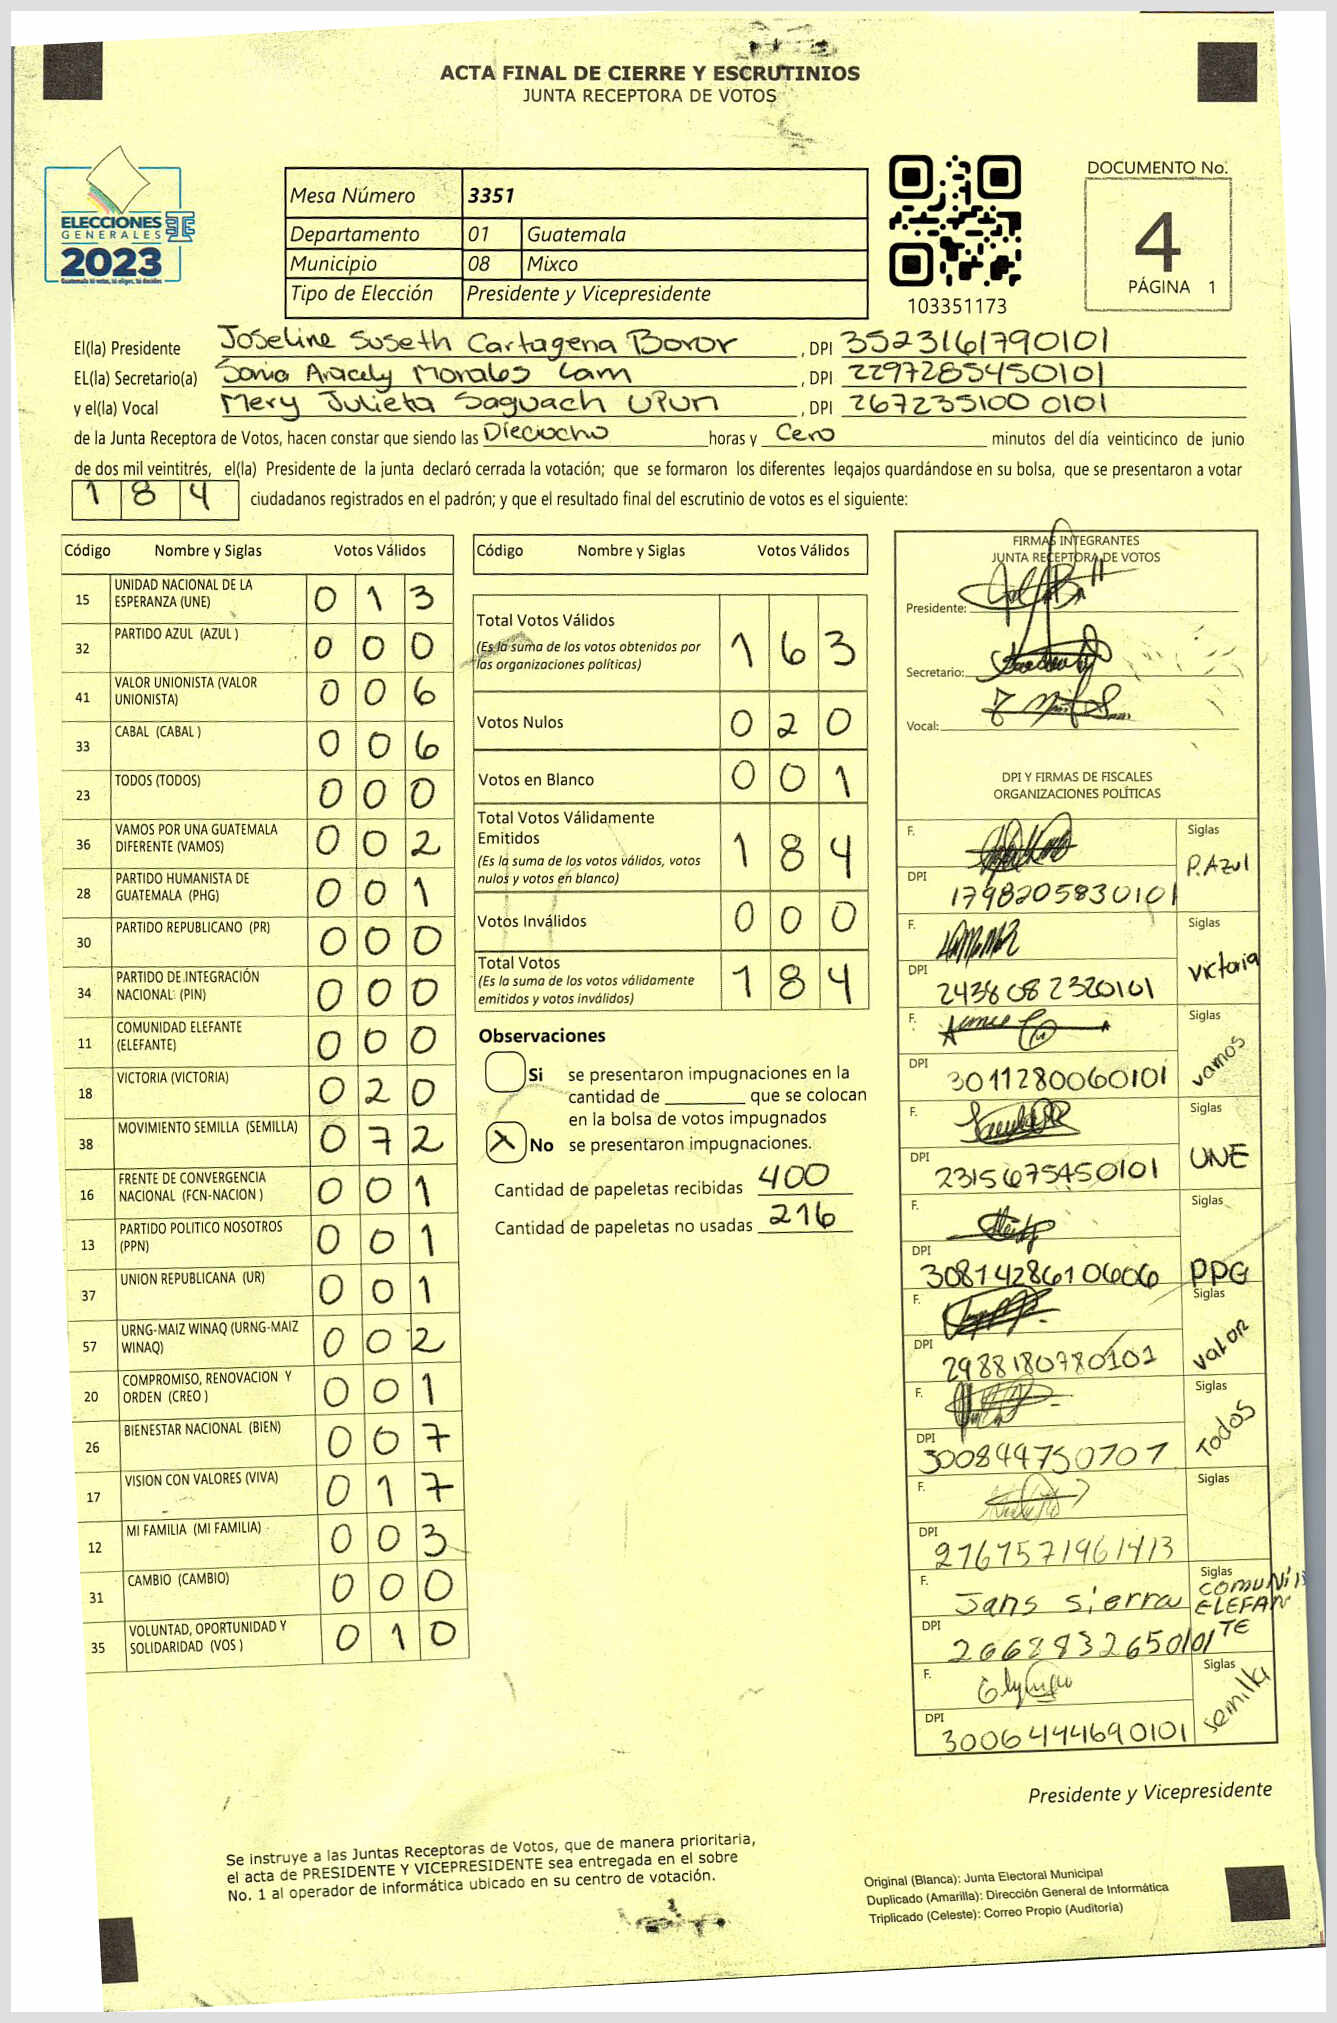 ACTA FINAL DE CIERRE Y ESCRUTINIOS
JUNTA RECEPTORA DE VOTOS
ELECCIONES
GENERALES
2023
Mesa Número 3351
Departamento 01 Guatemala
Municipio 08 Mixco
Tipo de Elección Presidente y Vicepresidente
103351173
DOCUMENTO No.
4
PÁGINA 1
El(la) Presidente Joseline Suseth Cartagena Boror, DPI 3523161790101
EL(la) Secretario(a) Sonia Aracely Morales Cam, DPI 2297285450101
y el(la) Vocal Mery Julieta Saguach Upun, DPI 267235100 0101
de la Junta Receptora de Votos, hacen constar que siendo las Dieciocho horas y Cero minutos del día veinticinco de junio
de dos mil veintitrés, el(la) Presidente de la junta declaró cerrada la votación; que se formaron los diferentes legajos guardándose en su bolsa, que se presentaron a votar
184 ciudadanos registrados en el padrón; y que el resultado final del escrutinio de votos es el siguiente:
Código Nombre y Siglas Votos Válidos
15 UNIDAD NACIONAL DE LA ESPERANZA (UNE) 0 1 3
32 PARTIDO AZUL (AZUL ) 0 0 0
41 VALOR UNIONISTA (VALOR UNIONISTA) 0 0 6
33 CABAL (CABAL ) 0 0 6
23 TODOS (TODOS) 0 0 0
36 VAMOS POR UNA GUATEMALA DIFERENTE (VAMOS) 0 0 2
28 PARTIDO HUMANISTA DE GUATEMALA (PHG) 0 0 1
30 PARTIDO REPUBLICANO (PR) 0 0 0
34 PARTIDO DE INTEGRACIÓN NACIONAL (PIN) 0 0 0
11 COMUNIDAD ELEFANTE (ELEFANTE) 0 0 0
18 VICTORIA (VICTORIA) 0 2 0
38 MOVIMIENTO SEMILLA (SEMILLA) 0 7 2
16 FRENTE DE CONVERGENCIA NACIONAL (FCN-NACION ) 0 0 1
13 PARTIDO POLITICO NOSOTROS (PPN) 0 0 1
37 UNION REPUBLICANA (UR) 0 0 1
57 URNG-MAIZ WINAQ (URNG-MAIZ WINAQ) 0 0 2
20 COMPROMISO, RENOVACION Y ORDEN (CREO ) 0 0 1
26 BIENESTAR NACIONAL (BIEN) 0 0 7
17 VISION CON VALORES (VIVA) 0 1 7
12 MI FAMILIA (MI FAMILIA) 0 0 3
31 CAMBIO (CAMBIO) 0 0 0
35 VOLUNTAD, OPORTUNIDAD Y SOLIDARIDAD (VOS ) 0 1 0
Código Nombre y Siglas Votos Válidos
Total Votos Válidos 1 6 3
(Es la suma de los votos obtenidos por
las organizaciones políticas)
Votos Nulos 0 2 0
Votos en Blanco 0 0 1
Total Votos Válidamente
Emitidos 1 8 4
(Es la suma de los votos válidos, votos
nulos y votos en blanco)
Votos Inválidos 0 0 0
Total Votos 1 8 4
(Es la suma de los votos válidamente
emitidos y votos inválidos)
Observaciones
Si se presentaron impugnaciones en la
cantidad de ________ que se colocan
en la bolsa de votos impugnados
X No se presentaron impugnaciones.
Cantidad de papeletas recibidas 400
Cantidad de papeletas no usadas 216
FIRMAS INTEGRANTES
JUNTA RECEPTORA DE VOTOS
Presidente:
Secretario:
Vocal:
DPI Y FIRMAS DE FISCALES
ORGANIZACIONES POLÍTICAS
F. Siglas P. Azul
DPI 1798205830101
F. Siglas Victoria
DPI 2438082320101
F. Siglas Vamos
DPI 3011280060101
F. Siglas UNE
DPI 2315675450101
F. Siglas PPG
DPI 3081428610606
F. Siglas Valor
DPI 2988180780101
F. Siglas Todos
DPI 300849750707
F. Siglas
DPI 2767571961413
F. Jans Sierra Siglas COMUNI ELEFAN TE
DPI 2668832650101
F. Siglas Semilla
DPI 3006444690101
Presidente y Vicepresidente
Se instruye a las Juntas Receptoras de Votos, que de manera prioritaria,
el acta de PRESIDENTE Y VICEPRESIDENTE sea entregada en el sobre
No. 1 al operador de informática ubicado en su centro de votación.
Original (Blanca): Junta Electoral Municipal
Duplicado (Amarilla): Dirección General de Informática
Triplicado (Celeste): Correo Propio (Auditoría)